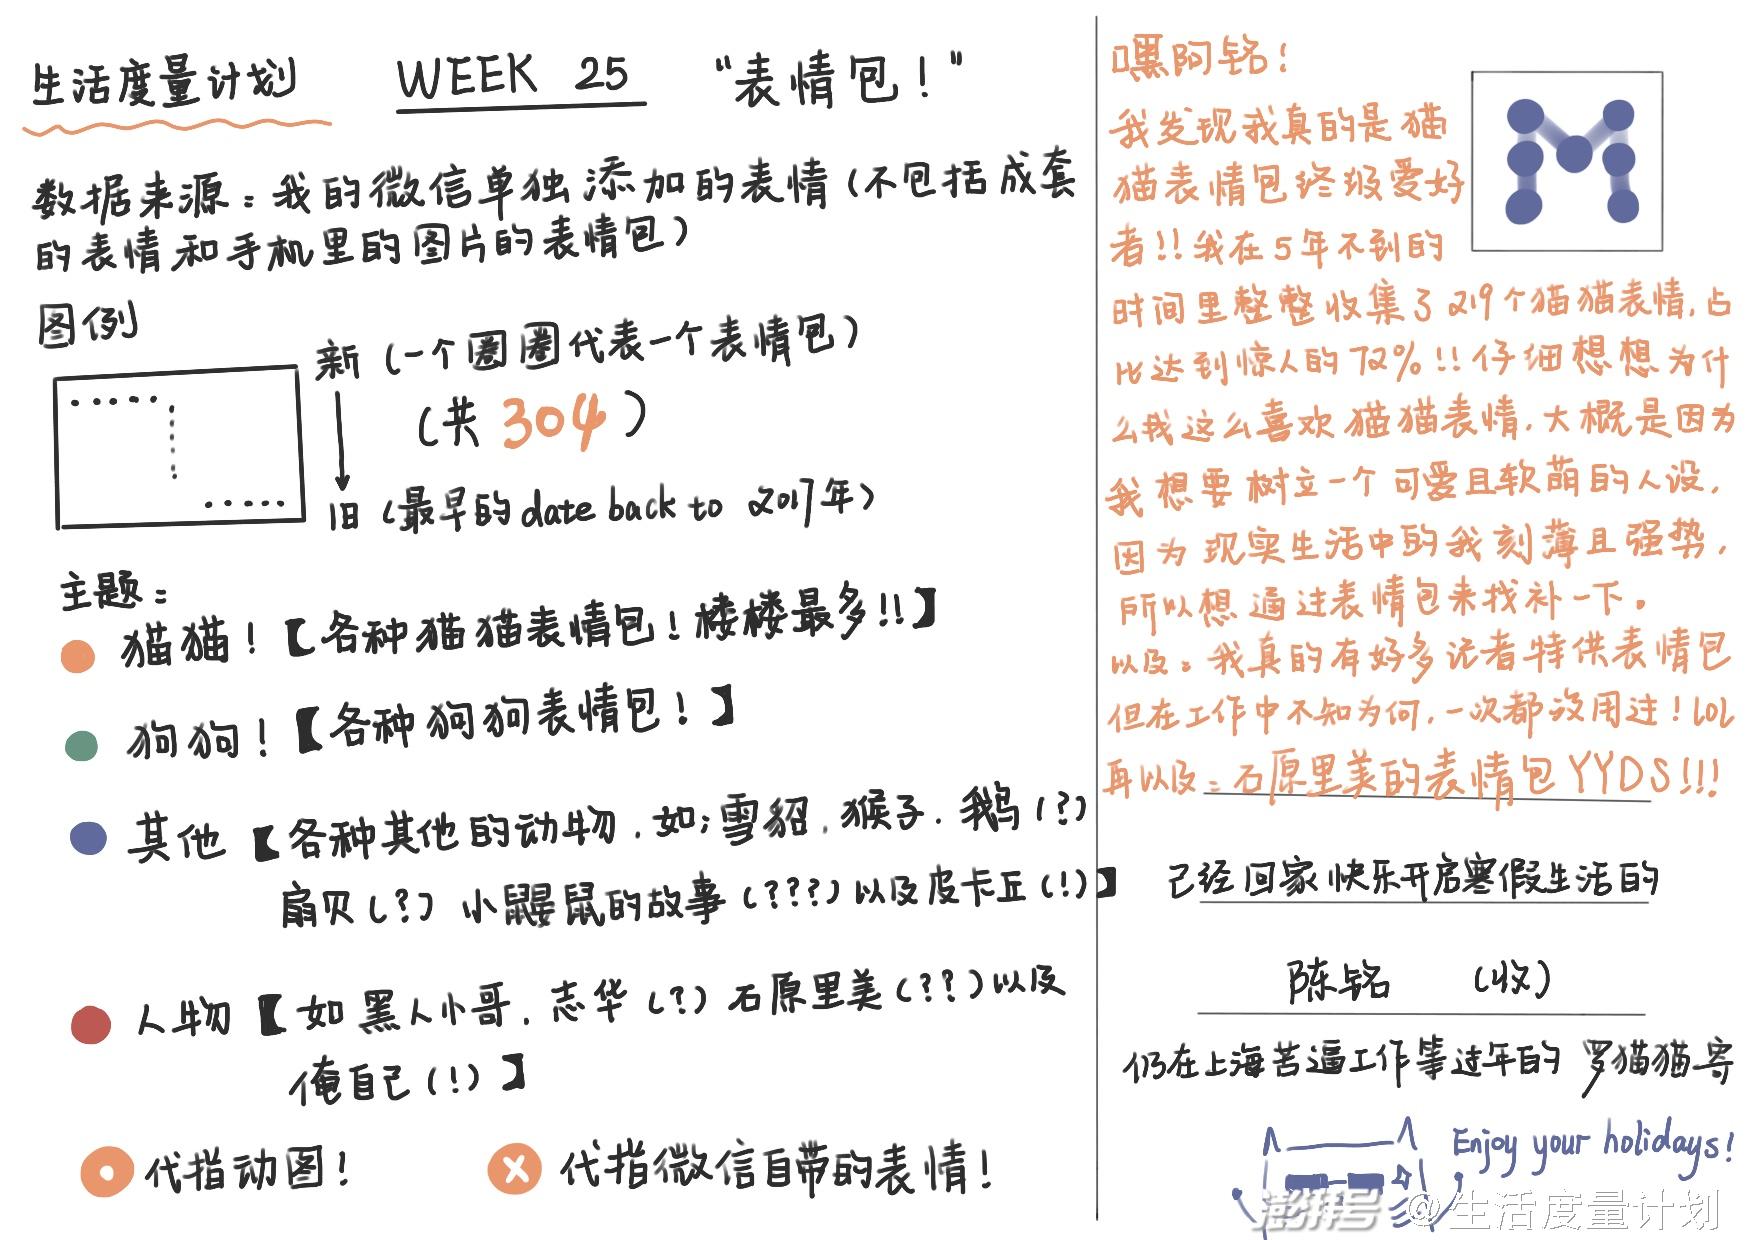 生活度量计划 WEEK 25 “表情包！”
数据来源：我的微信单独添加的表情（不包括成套
的表情和手机里的图片的表情包）
图例
新（一个圈圈代表一个表情包）
（共304）
旧（最早的date back to 2017年）
主题：
猫猫！【各种猫猫表情包！楼楼最多!!】
狗狗！【各种狗狗表情包！】
其他【各种其他的动物，如：雪貂，猴子，鹅（?）
扇贝（?）小鼹鼠的故事（???）以及皮卡丘（!）】
人物【如黑人小哥，志华（?）石原里美（??）以及
俺自己（!）】
代指动图！
X 代指微信自带的表情！
嘿阿铭！
我发现我真的是猫
猫表情包终级爱好
者!!我在5年不到的
时间里整整收集了219个猫猫表情，占
比达到惊人的72%!!仔细想想为什
么我这么喜欢猫猫表情，大概是因为
我想要树立一个可爱且软萌的人设，
因为现实生活中的我刻薄且强势，
所以想通过表情包来找补一下。
以及：我真的有好多记者特供表情包
但在工作中不知为何，一次都没用过！LOL
再以及：石原里美的表情包YYDS!!!
已经回家快乐开启寒假生活的
陈铭 （收）
仍在上海苦逼工作等过年的 罗猫猫寄
Enjoy your holidays!
澎湃号 @生活度量计划